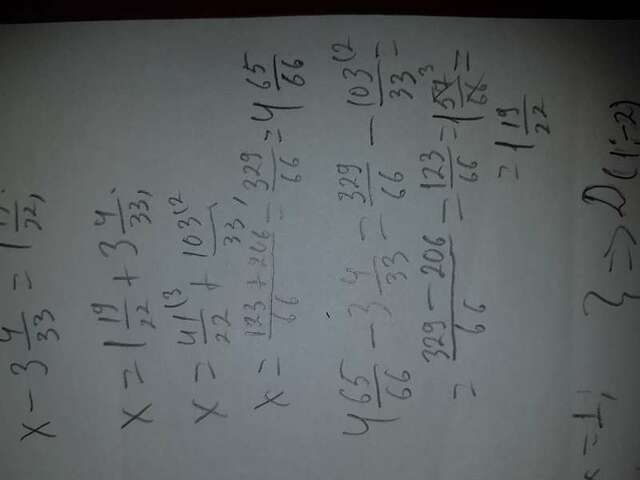 x - 3 4/33 = 1 19/22;
x = 1 19/22 + 3 4/33;
x = 41/22 (3 + 103/33 (2;
x = (123 + 206)/66 = 329/66 = 4 65/66
4 65/66 - 3 4/33 = 329/66 - 103/33 (2 =
= (329 - 206)/66 = 123/66 = 1 57/66 =
= 1 19/22
x = 1; } => D(1; -2)